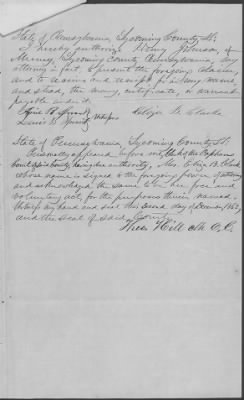 State of Pennsylvania, Lycoming County Ss.
I hereby authorize Henry Johnson, of
Muncy, Lycoming County Pennsylvania, my
attorney in fact, to present the foregoing claim,
and to receive and receipt for in my name
and stead, the money, certificate, or warrant
payable under it.
Witnesses
Eliza B. Clark
State of Pennsylvania, Lycoming County Ss.
Personally appeared before me, Clerk of the Orphans
Court of said County having due authority, Mrs. Eliza B. Clark
whose name is signed to the foregoing power of attorney
and acknowledged the same to be her free and
voluntary act, for the purposes therein named.
Witness my hand and seal this second day of December 1862,
and the seal of said County.
Hill Clk O.C.